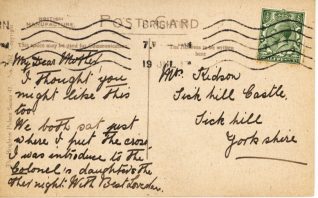 POST CARD
BRITISH
MANUFACTURE.
This space may be used for Communication.
The Address to be written here
BRIGHTON
19 JUL
My Dear Mother
I thought you
might like this
too.
We both sat just
where I put the cross.
I was introduce to the
Colonel's daughter the
other night. With Best Love
Mrs. Kidson
Tick hill Castle,
Tick hill
Yorkshire